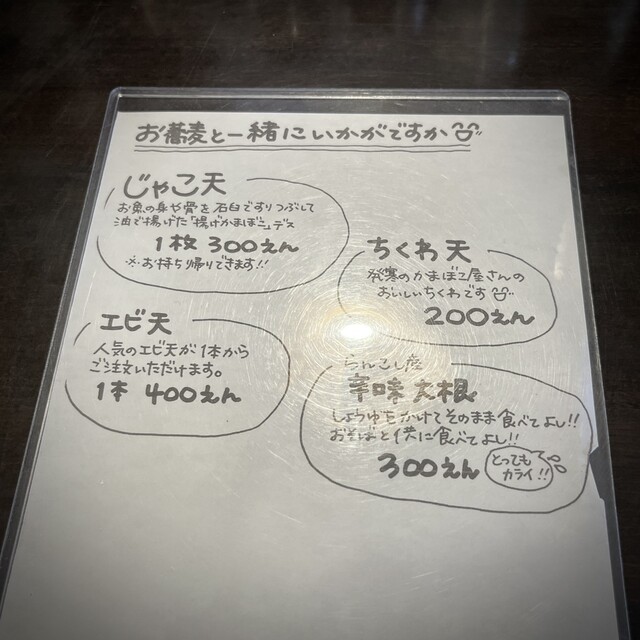 お蕎麦と一緒にいかがですか
じゃこ天
お魚の身や骨を石臼ですりつぶして
油で揚げた「揚げかまぼこ」デス
1枚 300えん
※お持ち帰りできます!!
ちくわ天
発寒のかまぼこ屋さんの
おいしいちくわです
200えん
エビ天
人気のエビ天が1本から
ご注文いただけます。
1本 400えん
らんこし産
辛味大根
しょうゆをかけてそのまま食べてよし!!
おそばと供に食べてよし!!
300えん
とっても
カライ!!